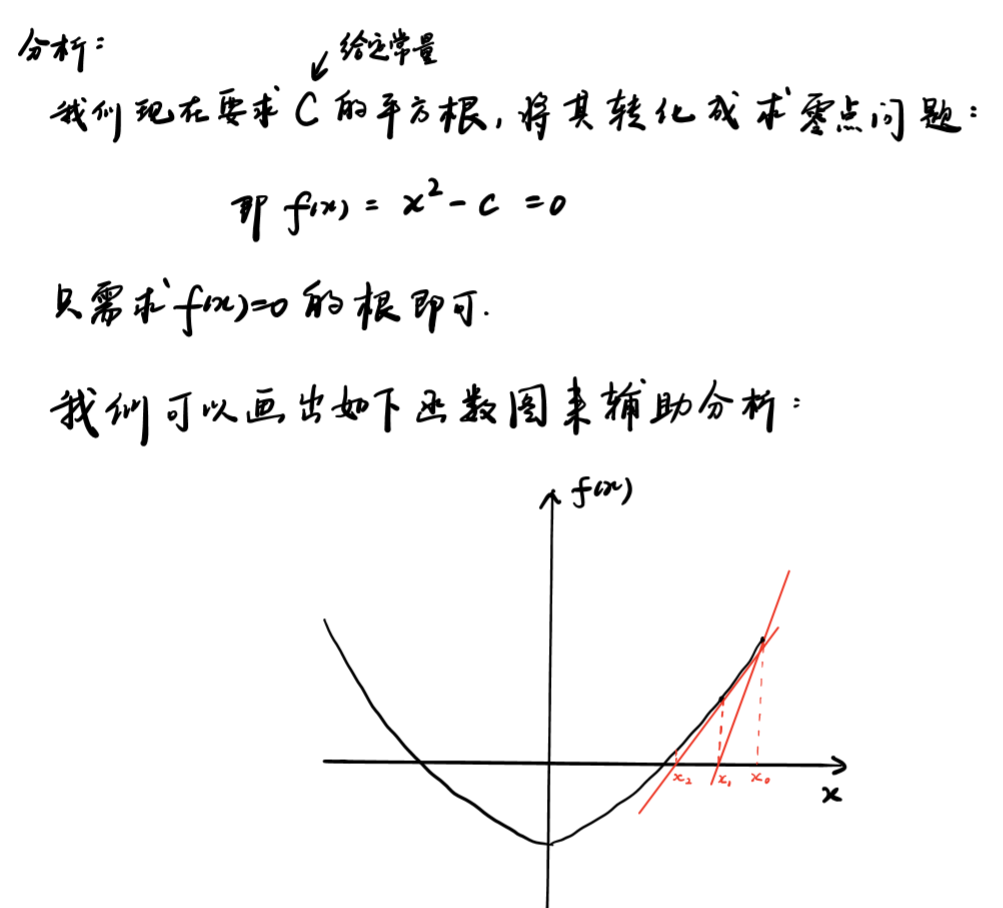 分析：
给定常量
我们现在要求 C 的平方根，将其转化成求零点问题：
即 f(x) = x² - c = 0
只需求 f(x)=0 的根即可.
我们可以画出如下函数图来辅助分析：
f(x)
x₂ x₁ x₀
x